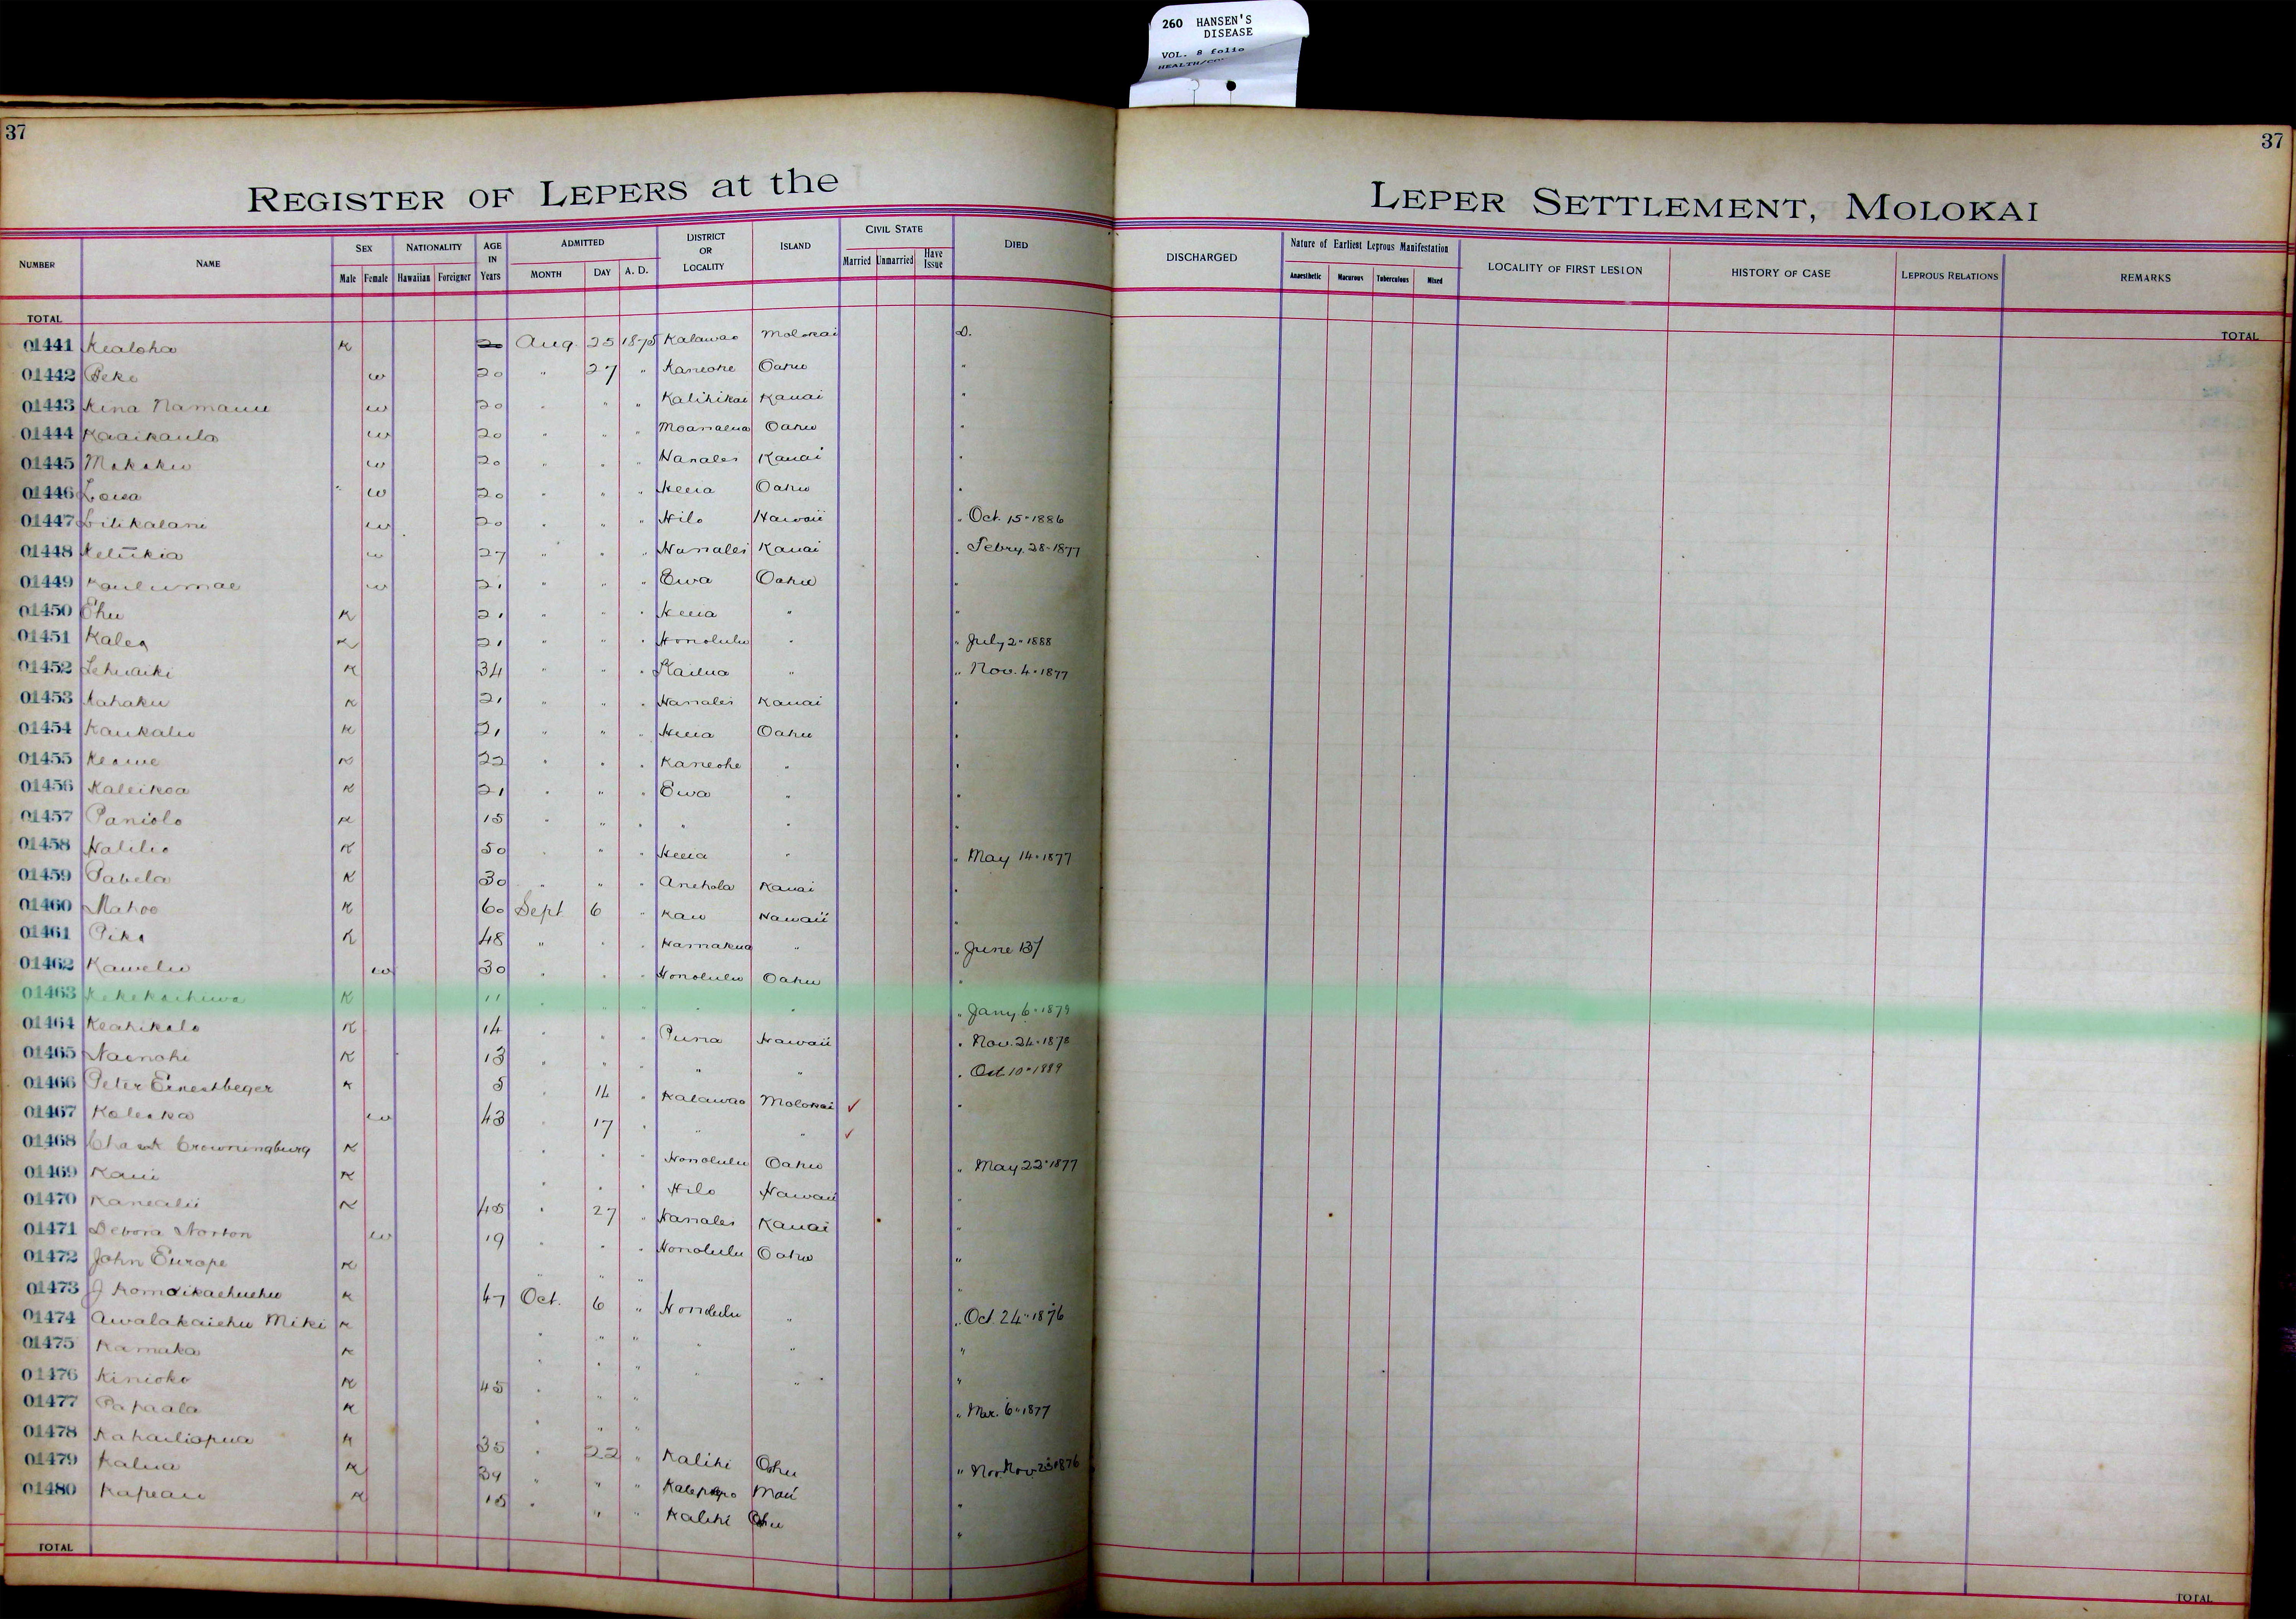 260 HANSEN'S
DISEASE
VOL. 8 folio
37
37
REGISTER OF LEPERS at the
LEPER SETTLEMENT, MOLOKAI
NUMBER NAME SEX Male Female NATIONALITY Hawaiian Foreigner AGE IN Years ADMITTED MONTH DAY A. D. DISTRICT OR LOCALITY ISLAND CIVIL STATE Married Unmarried Have Issue DIED
DISCHARGED Nature of Earliest Leprous Manifestation Anaesthetic Macurous Tuberculous Mixed LOCALITY OF FIRST LESION HISTORY OF CASE LEPROUS RELATIONS REMARKS
TOTAL
TOTAL
01441 Kealoha K 20 Aug. 25 1875 Kalawao Molokai D.
01442 Peke w 20 " 27 " Kaneohe Oahu "
01443 Kina Namauu w 20 " " " Kalihikai Kauai "
01444 Kaaikaula w 20 " " " Moanalua Oahu "
01445 Mokoku w 20 " " " Hanalei Kauai "
01446 Loisa w 20 " " " Heeia Oahu "
01447 Lilikalani w 20 " " " Hilo Hawaii " Oct. 15-1886
01448 Keliikia w 27 " " " Hanalei Kauai " Febry. 28-1877
01449 Kaulumae w 21 " " " Ewa Oahu "
01450 Ehu K 21 " " " Heeia " "
01451 Kalea K 21 " " " Honolulu " " July 2-1888
01452 Lehuaiki K 34 " " " Kailua " " Nov. 4-1877
01453 Kahaku K 21 " " " Hanalei Kauai "
01454 Kaukaliu K 21 " " " Heeia Oahu "
01455 Keawe K 22 " " " Kaneohe " "
01456 Kaleikoa K 21 " " " Ewa " "
01457 Paniolo K 15 " " " " " "
01458 Halilio K 50 " " " Heeia " " May 14-1877
01459 Pabela K 30 " " " Anehola Kauai "
01460 Mahoe K 60 Sept 6 " Kau Hawaii "
01461 Piko K 48 " " " Hamakua " " June 13/
01462 Kawelu w 30 " " " Honolulu Oahu "
01463 Kekekaehuwa K 11 " " " " " " Jany 6-1879
01464 Keahikolo K 14 " " " Puna Hawaii " Nov. 24-1878
01465 Nainohi K 13 " " " " " " Oct. 10-1889
01466 Peter Ernestbeger K 5 " 14 " Kalawao Molokai ✓ "
01467 Koleka w 43 " 17 " " " ✓
01468 Crowningburg K " " " Honolulu Oahu " May 22-1877
01469 Kaui K " " " Hilo Hawaii "
01470 Kanealii K 45 " 27 " Hanalei Kauai "
01471 Debora Norton w 19 " " " Honolulu Oahu "
01472 John Europe K " " " "
01473 J Komoikaehuehu K 47 Oct. 6 " Honolulu " " Oct. 24-1876
01474 Awalakaiehu Miki K " " " " " "
01475 Kamaka K " " " " " "
01476 Kinioko K 45 " " " " Mar. 6-1877
01477 Papaala K " " "
01478 Kahailiopua K 35 " 22 " Kalihi Oahu " Nov. 23-1876
01479 Kalua K 34 " " " Maui "
01480 Kapeau K 15 " " " Kalihi Oahu "
TOTAL
TOTAL